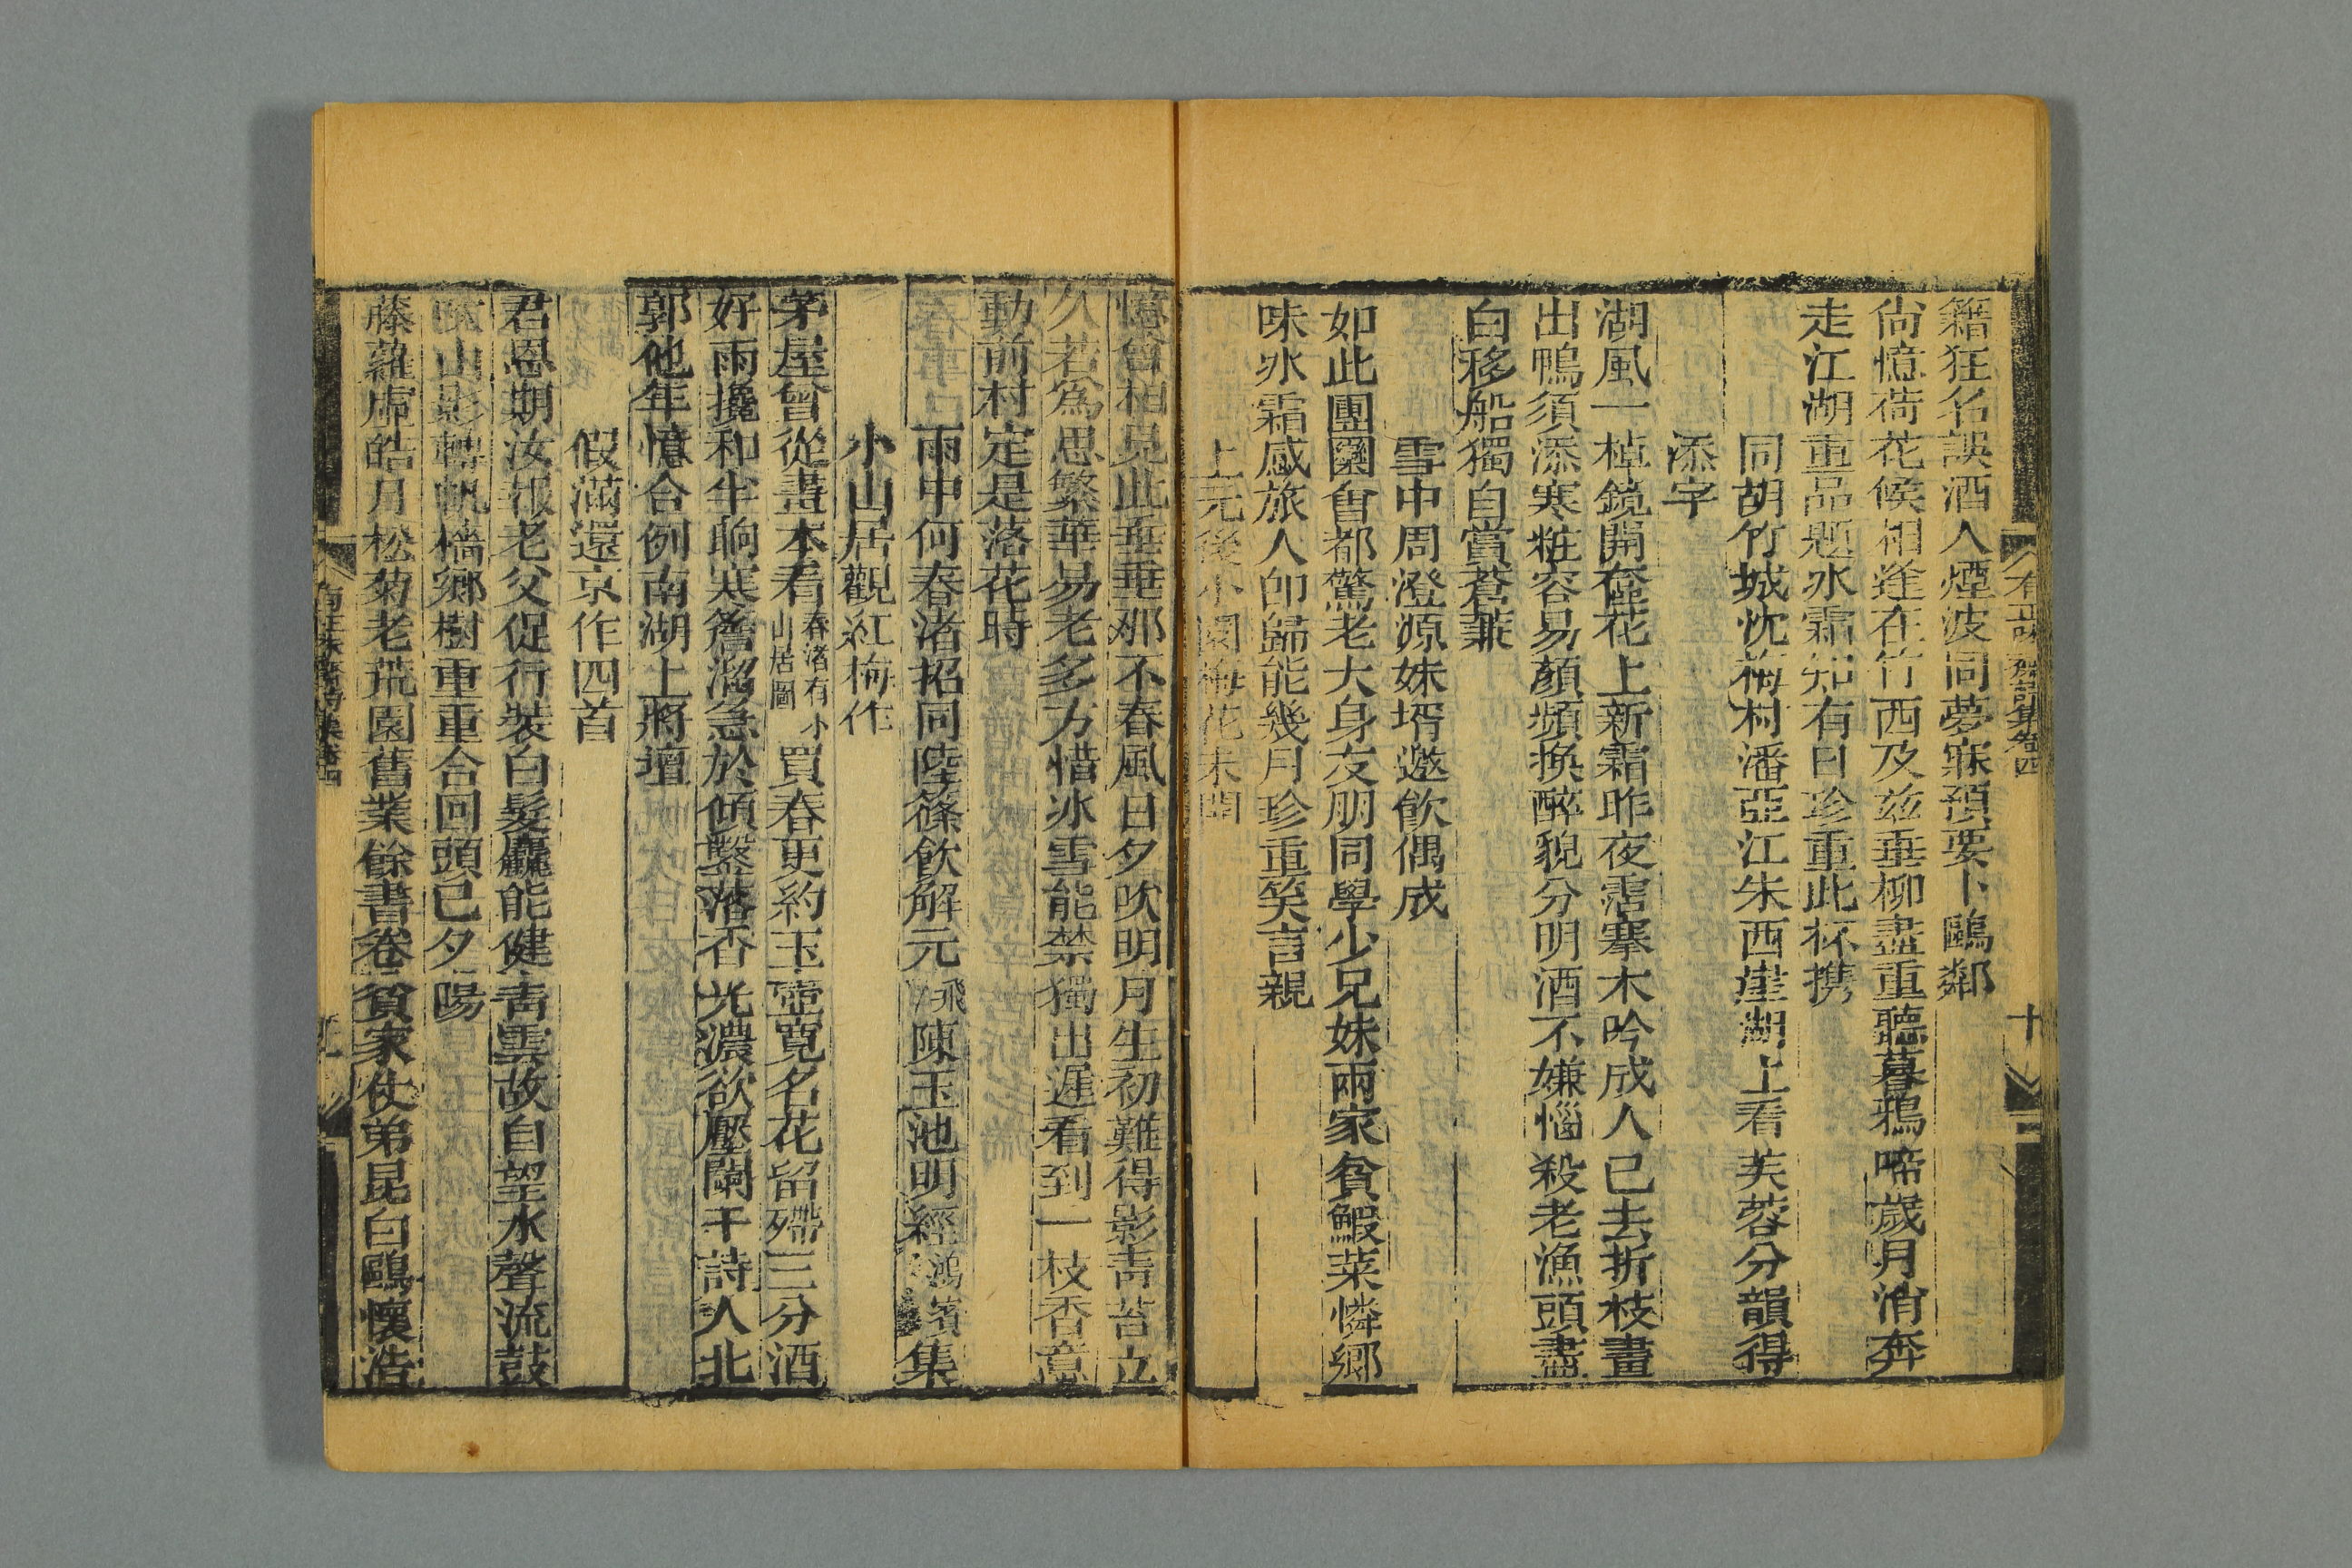 籍狂名誤酒人煙波同夢寐預要卜鷗鄰
尙憶荷花候相逢在竹西及茲垂柳盡重聽暮鴉啼歲月消奔
走江湖重品題氷霜知有日珍重此杯携
同胡竹城沈梅村潘亞江朱西崖湖上看芙蓉分韻得
添字
湖風一棹鏡開奩花上新霜昨夜霑搴木吟成人已去折枝畫
出鴨須添寒粧容易顏頻換醉貌分明酒不嫌惱殺老漁頭盡
白移船獨自賞蒼蒹
雪中周澄源妹壻邀飮偶成
如此團圞會都驚老大身友朋同學少兄妹兩家貧鰕菜憐鄉
味氷霜感旅人卽歸能幾月珍重笑言親
上元後小園梅花未開
憶曾相見此垂垂那不春風日夕吹明月生初難得影靑苔立
久若爲思繁華易老多方惜冰雪能禁獨出遲看到一枝香意
動前村定是落花時
雨中何春渚招同陸篠飮解元飛陳玉池明經鴻濱集
小山居觀紅梅作
茅屋曾從畫本看春渚有小山居圖買春更約玉壺寬名花留殢三分酒
好雨攙和半晌寒簷溜急於傾鑿落香光濃欲壓闌干詩人北
郭他年憶合例南湖上將壇
假滿還京作四首
君恩期汝報老父促行裝白髮驘能健靑雲故自望水聲流鼓
山影轉帆檣鄉樹重重合回頭已夕陽
藤蘿虛皓月松菊老荒園舊業餘書卷貧家仗弟昆白鷗懷浩